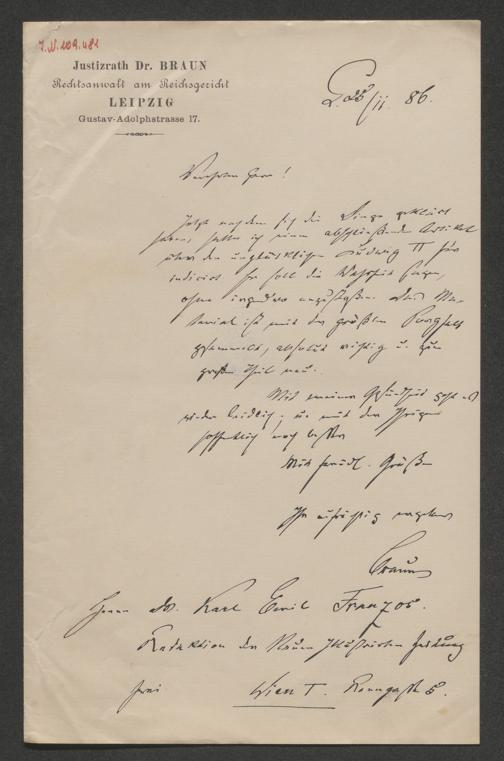 J.N. 209.481
Justizrath Dr. BRAUN
Rechtsanwalt am Reichsgericht
LEIPZIG
Gustav-Adolphstrasse 17.
L. 25/11. 86.
Verehrter Herr!
Jetzt nachdem sich die Dinge geklärt
haben, halte ich einen abschließenden Artikel
über den unglücklichen Ludwig II für
indicirt. Er soll die Wahrheit sagen,
ohne irgendwo anzustoßen. Das Ma-
terial ist mit der größten Sorgfalt
gesammelt, absolut richtig u. zum
großen Theil neu.
Mit meiner Gesundheit geht es
wieder leidlich; u. mit der Ihrigen
hoffentlich noch besser
Mit freundl. Grüßen
Ihr aufrichtig ergebener
Braun
Herrn Dr. Karl Emil Franzos.
Redaktion der Neuen Illustrirten Zeitung
Wien I. Renngasse 5.